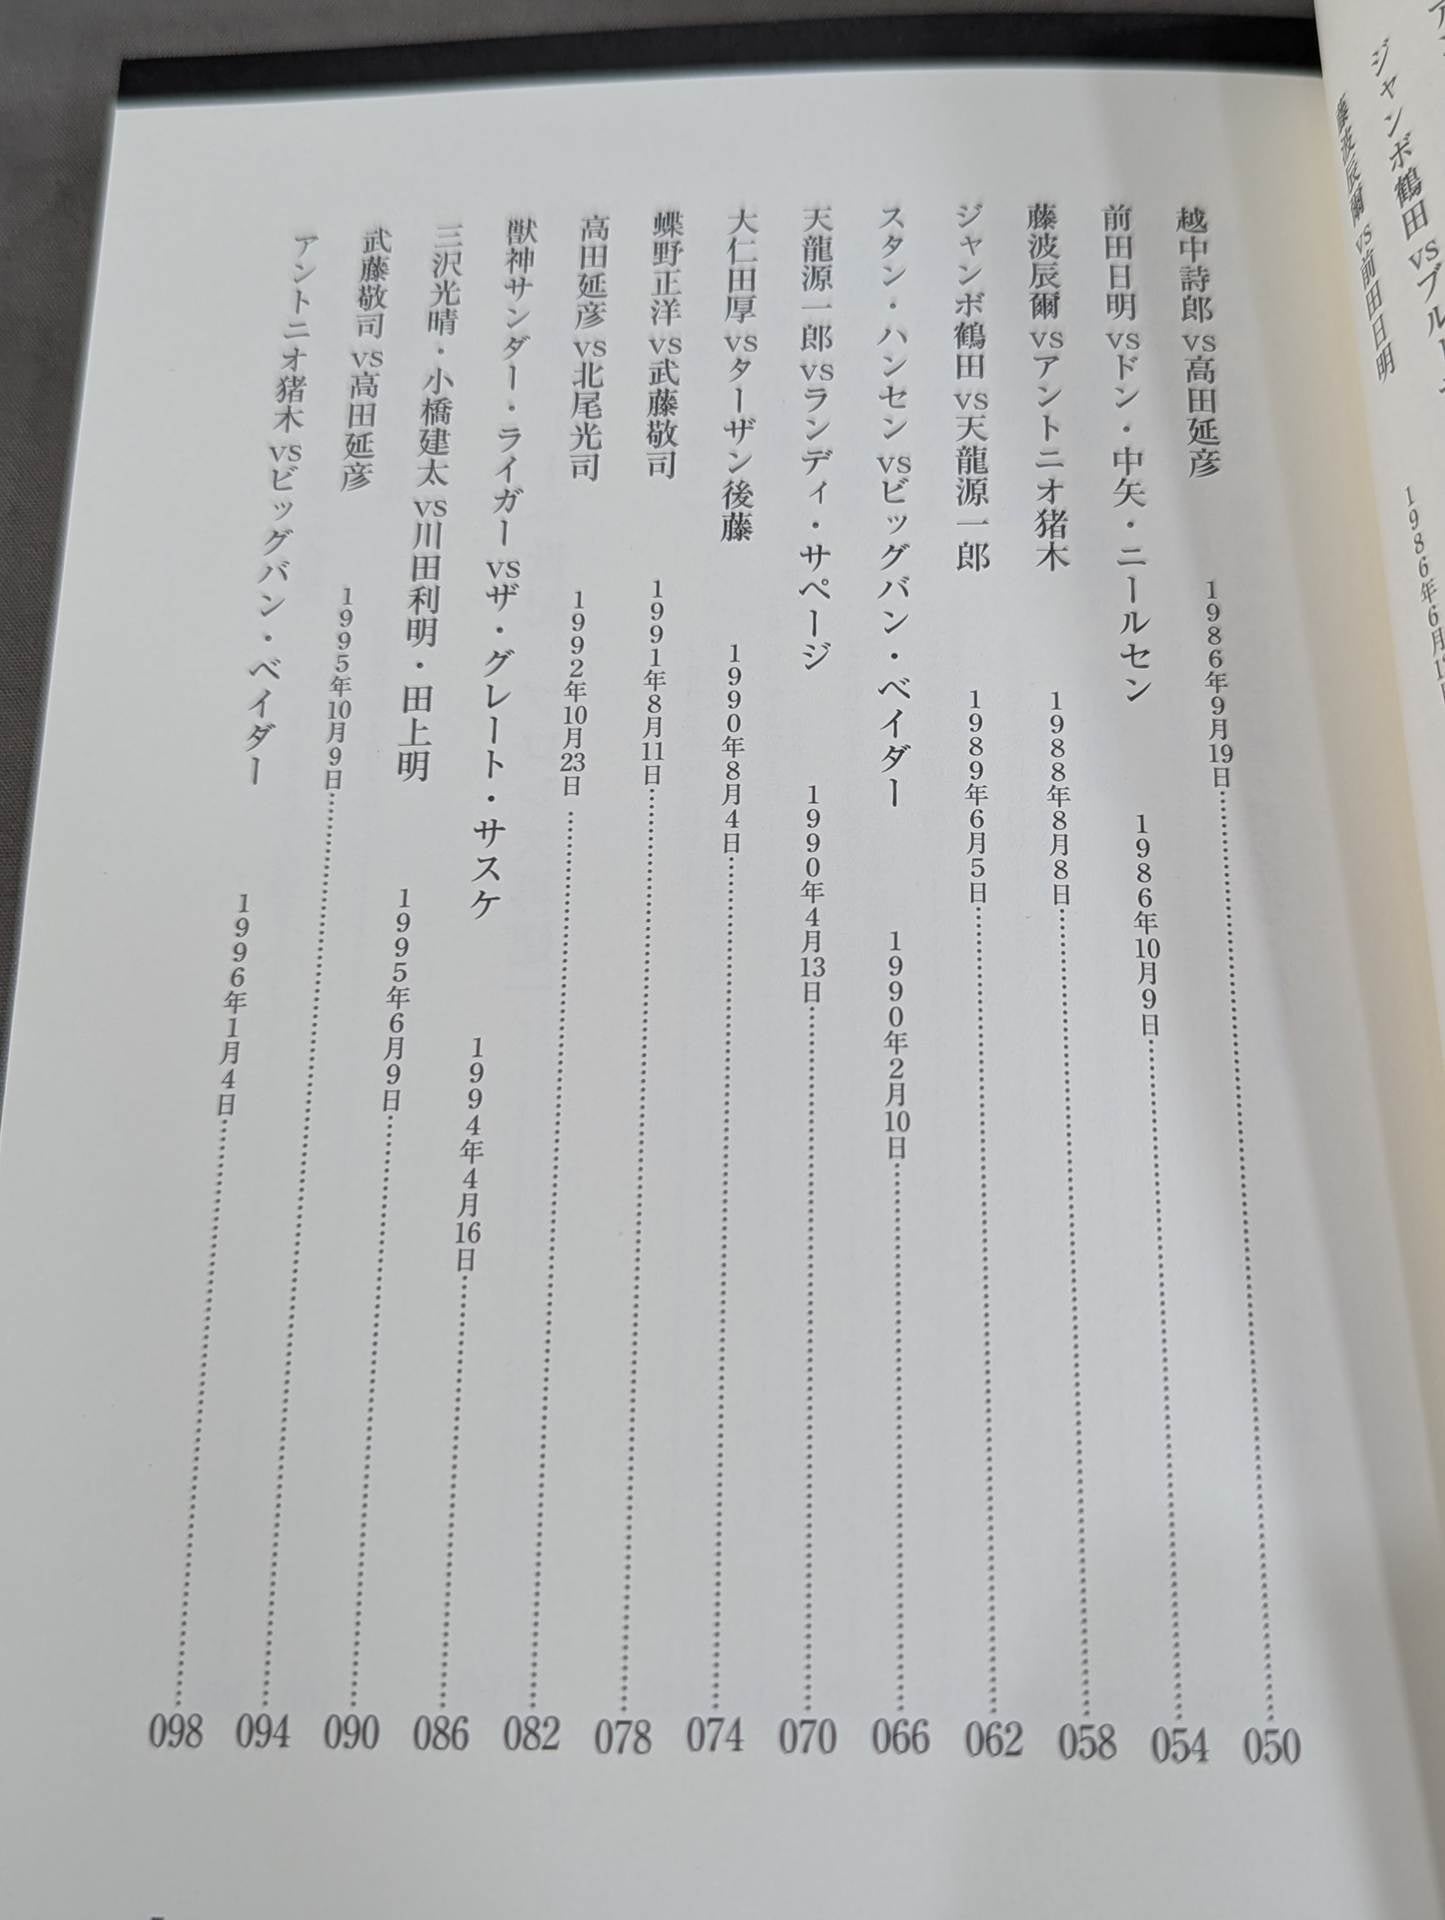 ジャンボ鶴田vsブル
藤波辰爾vs前田日明
1986年6月1
越中詩郎vs高田延彦 1986年9月19日 050
前田日明vsドン・中矢・ニールセン 1986年10月9日 054
藤波辰爾vsアントニオ猪木 1988年8月8日 058
ジャンボ鶴田vs天龍源一郎 1989年6月5日 062
スタン・ハンセンvsビッグバン・ベイダー 1990年2月10日 066
天龍源一郎vsランディ・サベージ 1990年4月13日 070
大仁田厚vsターザン後藤 1990年8月4日 074
蝶野正洋vs武藤敬司 1991年8月11日 078
高田延彦vs北尾光司 1992年10月23日 082
獣神サンダー・ライガーvsザ・グレート・サスケ 1994年4月16日 086
三沢光晴・小橋建太vs川田利明・田上明 1995年6月9日 090
武藤敬司vs高田延彦 1995年10月9日 094
アントニオ猪木vsビッグバン・ベイダー 1996年1月4日 098